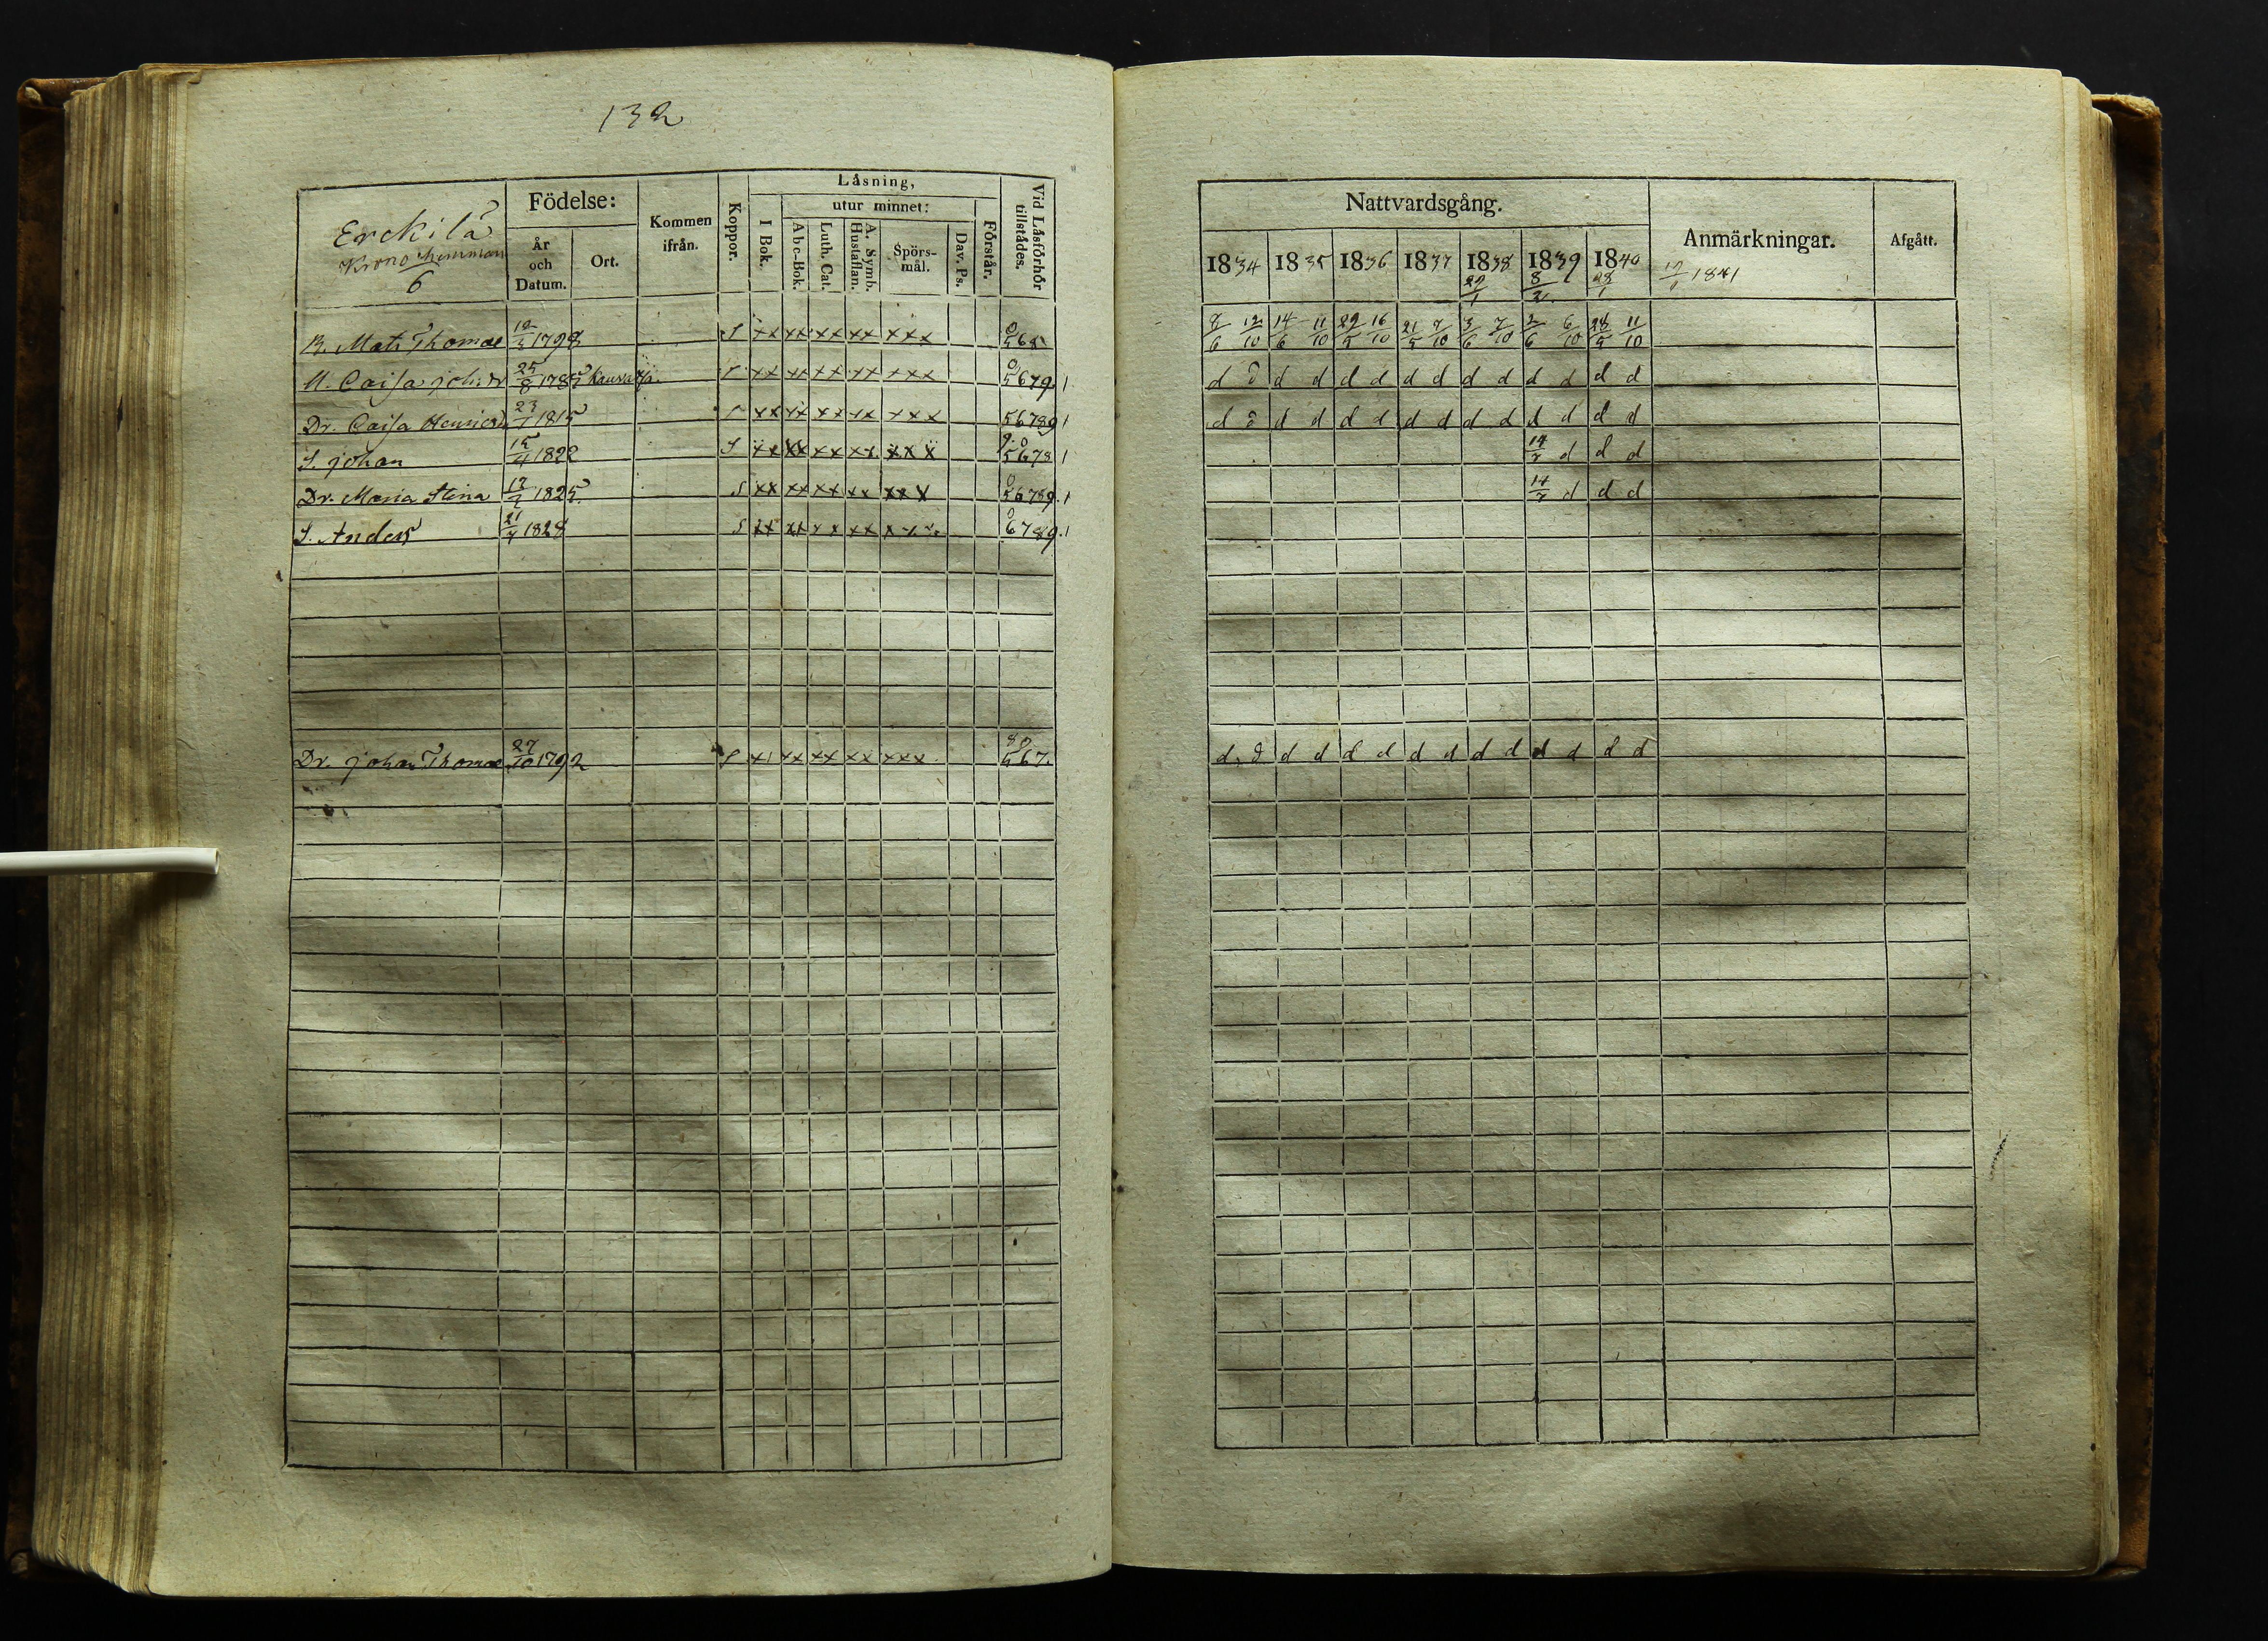 132
Erckilä
Krono hemman
6
Födelse:
År och Datum.
Ort.
Kommen ifrån.
Koppor.
Låsning,
utur minnet:
I Bok.
Abc-Bok.
Luth. Cat.
A. Symb. Hustaflan.
Spörs-mål.
Dav. Ps.
Förstår.
Vid Låsförhör tillstådes.
B. Mats Thomae 12/3 1798 S xx xx xx xx xxx 0 568
M. Caisa Johsdr 25/8 1785 xx xx xx xx xxx 0 5679.1
Dr. Caisa Henricsdr 23/7 1815 xx xx xx xx xxx 56789 1
S. Johan 15/4 1822 S xx xx xx xx xxx 5678 1
Dr. Maria Stina 1825 S xx xx xx xx xxx 0 56789.1
S. Anders 1828 S xx xx xx xx xxx 0 6789.1
Dr. Johan Thomae 27/10 1792 S xx xx xx xx xxx 567.
Nattvardsgång.
Anmärkningar.
Afgått.
1834 1835 1836 1837 1838 1839 1840
29/1 8/2 28/1 1841
8/6 12/10 14/6 11/10 29/5 16/10 21/5 8/10 3/6 7/10 2/6 6/10 28/5 11/10
d d d d d d d d d d d d d d
d d d d d d d d d d d d d d
14/7 d d d
14/7 d d d
d d d d d d d d d d d d d d